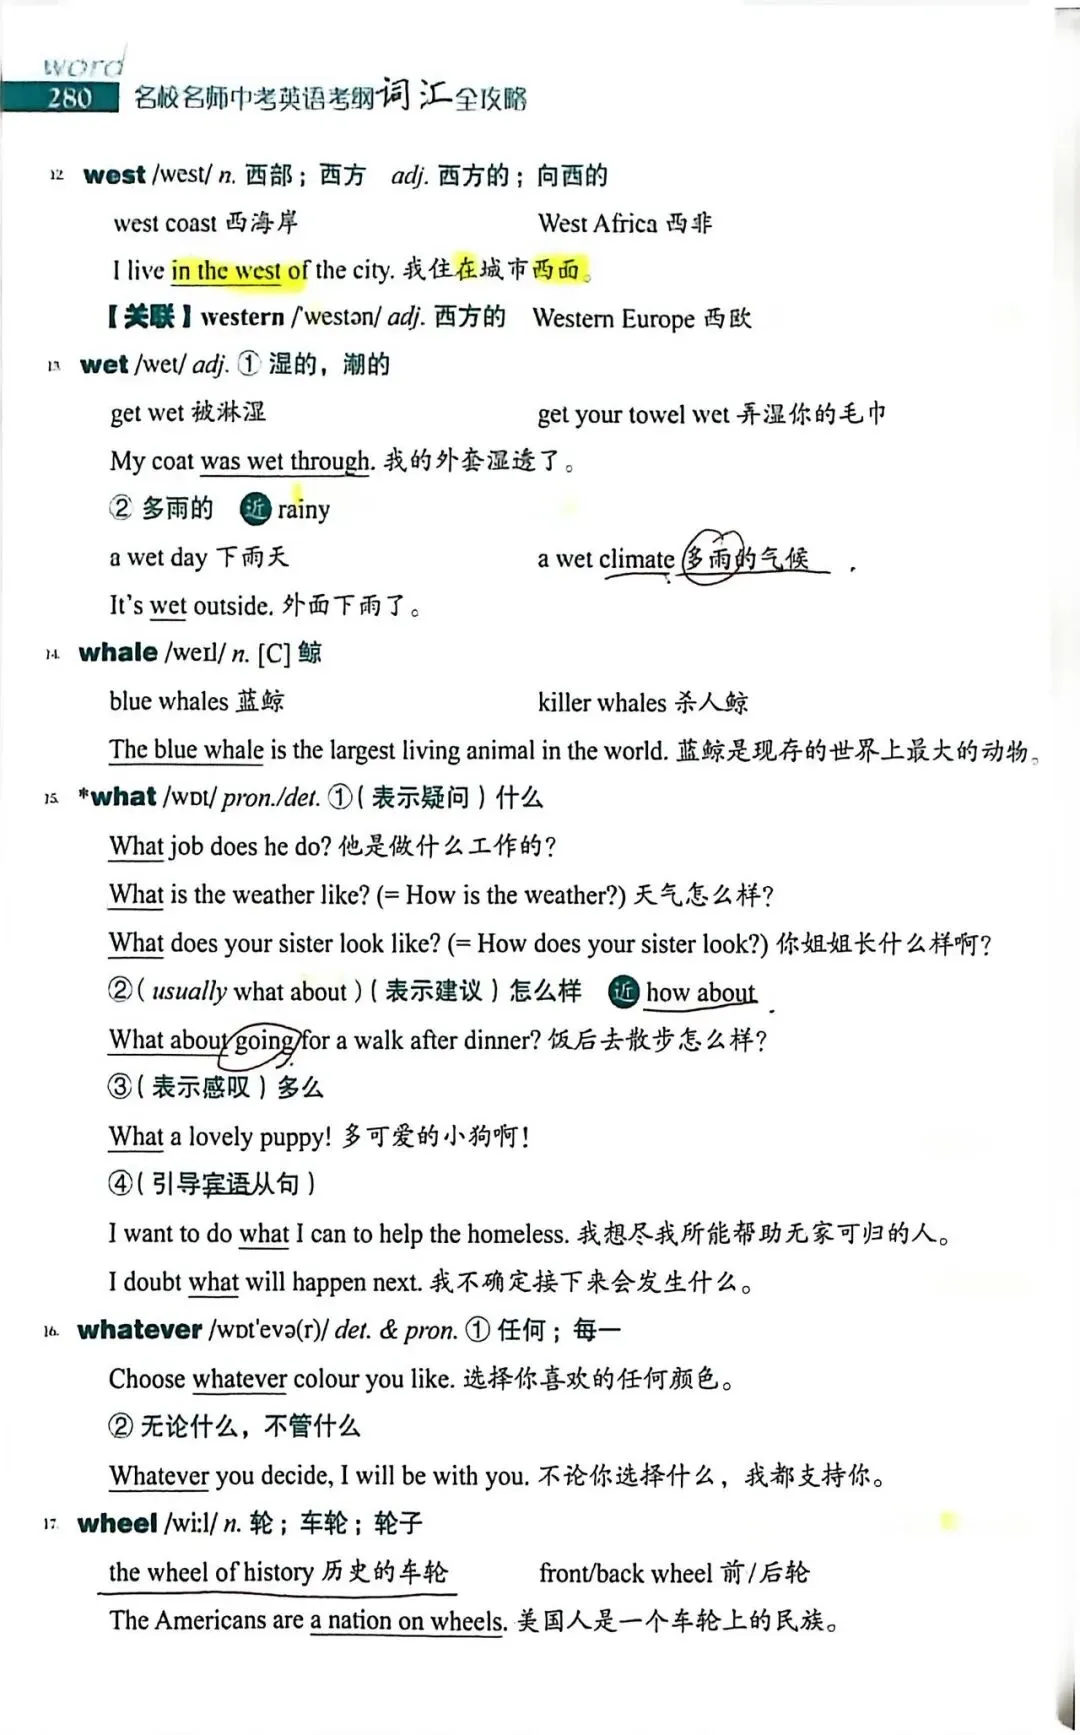 word
280 名校名师中考英语考纲词汇全攻略
12. west /west/ n. 西部；西方 adj. 西方的；向西的
west coast 西海岸 West Africa 西非
I live in the west of the city. 我住在城市西面。
【关联】western /'westən/ adj. 西方的 Western Europe 西欧
13. wet /wet/ adj. ① 湿的，潮的
get wet 被淋湿 get your towel wet 弄湿你的毛巾
My coat was wet through. 我的外套湿透了。
② 多雨的 近 rainy
a wet day 下雨天 a wet climate 多雨的气候
It's wet outside. 外面下雨了。
14. whale /weɪl/ n. [C] 鲸
blue whales 蓝鲸 killer whales 杀人鲸
The blue whale is the largest living animal in the world. 蓝鲸是现存的世界上最大的动物。
15. *what /wɒt/ pron./det. ①（表示疑问）什么
What job does he do? 他是做什么工作的?
What is the weather like? (= How is the weather?) 天气怎么样?
What does your sister look like? (= How does your sister look?) 你姐姐长什么样啊?
②（usually what about）（表示建议）怎么样 近 how about
What about going for a walk after dinner? 饭后去散步怎么样?
③（表示感叹）多么
What a lovely puppy! 多可爱的小狗啊!
④（引导宾语从句）
I want to do what I can to help the homeless. 我想尽我所能帮助无家可归的人。
I doubt what will happen next. 我不确定接下来会发生什么。
16. whatever /wɒt'evə(r)/ det. & pron. ① 任何；每一
Choose whatever colour you like. 选择你喜欢的任何颜色。
② 无论什么，不管什么
Whatever you decide, I will be with you. 不论你选择什么，我都支持你。
17. wheel /wi:l/ n. 轮；车轮；轮子
the wheel of history 历史的车轮 front/back wheel 前/后轮
The Americans are a nation on wheels. 美国人是一个车轮上的民族。